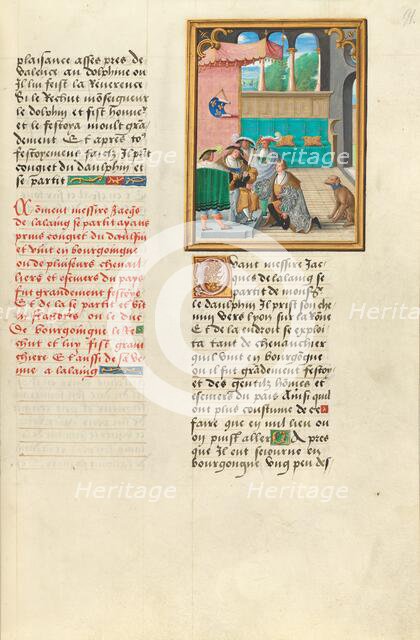 91.
plaisance asses pres de
valence au dolphine ou
Il luy feist la Reverence
Si le Rechut monseigneur
le dolphin et fist honneur
et le festoya moult gra(n)
dement Et apres to(us)
festoyemens faictz Il prist
congiet du daulphin et
se partit
Coment messire Jaques
de lalaing se partit ayans
prins congiet du daulphin
et vint en bourgoingne
ou de plusieurs cheual
liers et escuiers du pays
fut grandement festoye
Et de la se partit et vit
en flandres ou le duc
de bourgoingne le Re
chut et luy fist grant
chiere Et aussi de sa ve
nue a lalaing
Quant messire Jac
ques de lalaing se
partit de monsr
le daulphin Il prist son che
min vers lyon sur la Rone
Et de la endroit se exploi
ta tant de cheuauchier
quil vint en bourgogne
ou il fut grandement festoy
et des gentilz homes et
escuiers du pais Ainsi quil
ont plus coustume de ce
faire que en nul lieu ou
on puist aller Apres
que Il eut seiourne en
bourgongne vng peu des
Heritage
Heritage
Heritage
Heritage
Heritage
Heritage